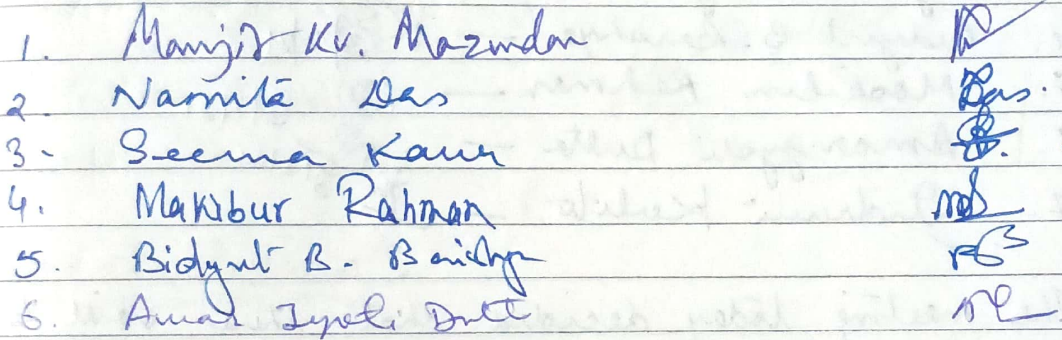 1. Manjit Kr. Mazumdar
2. Namita Das Das.
3- Seema Kaur
4. Makibur Rahman
5. Bidyut B. Baishya
6. Amar Jyoti Dutt